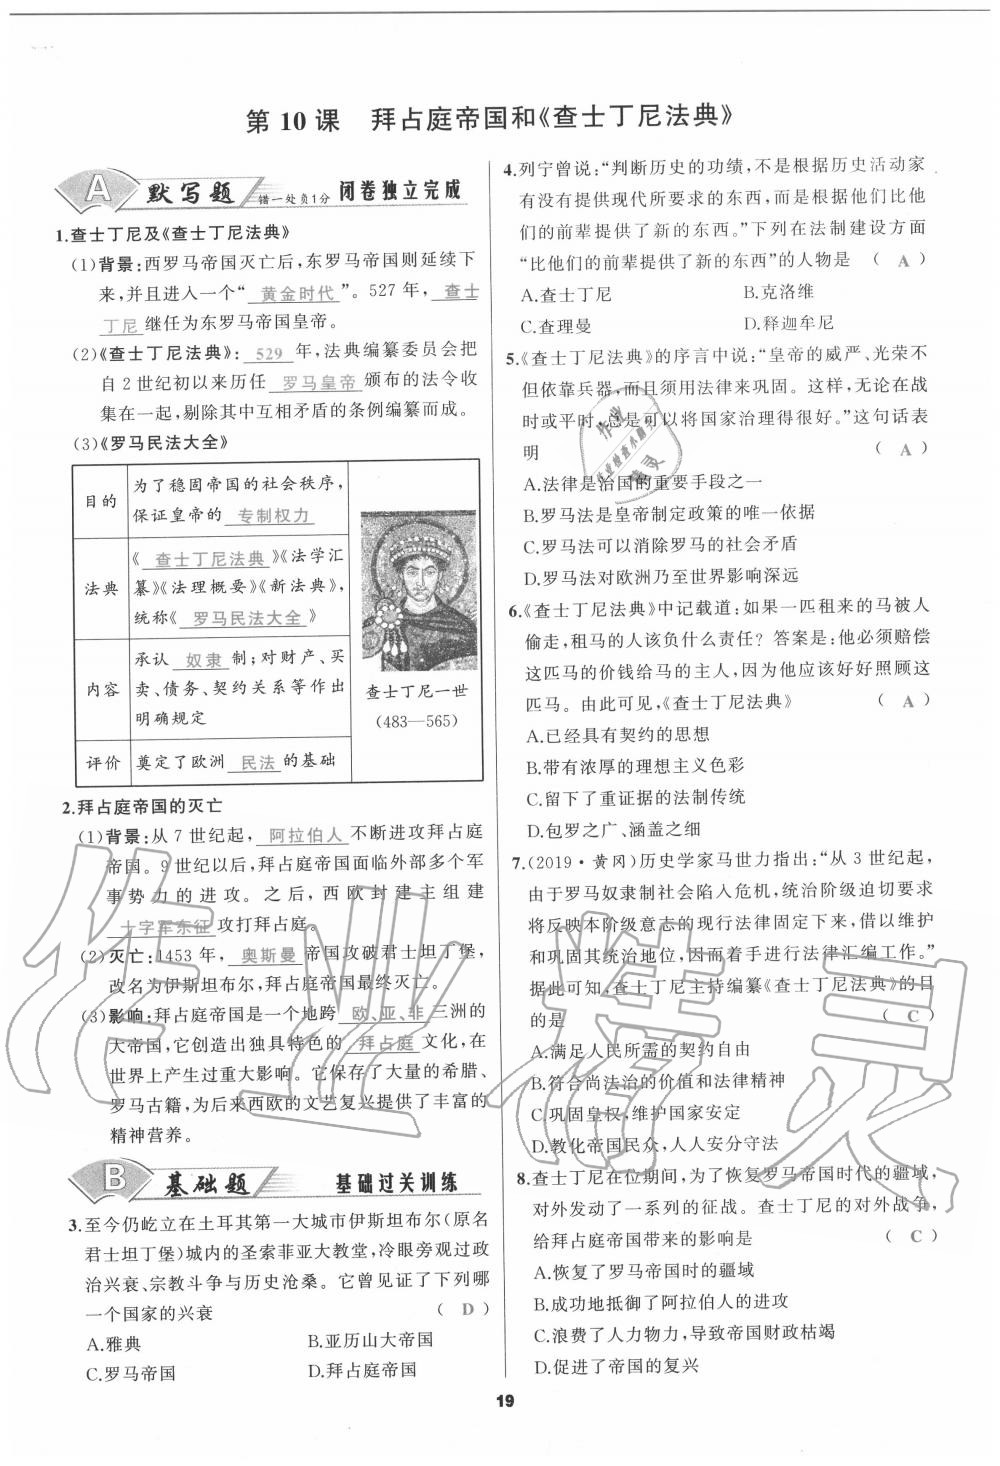 第 10 课　拜占庭帝国和《查士丁尼法典》
A 默写题 错一处负1分 闭卷独立完成
1.查士丁尼及《查士丁尼法典》
(1)背景:西罗马帝国灭亡后,东罗马帝国则延续下
来,并且进入一个“ 黄金时代 ”。527 年, 查士
丁尼 继任为东罗马帝国皇帝。
(2)《查士丁尼法典》: 529 年,法典编纂委员会把
自 2 世纪初以来历任 罗马皇帝 颁布的法令收
集在一起,剔除其中互相矛盾的条例编纂而成。
(3)《罗马民法大全》
目的
为了稳固帝国的社会秩序,
保证皇帝的 专制权力
法典
《 查士丁尼法典 》《法学汇
纂》《法理概要》《新法典》,
统称《 罗马民法大全 》
内容
承认 奴隶 制;对财产、买
卖、债务、契约关系等作出
明确规定
评价
奠定了欧洲 民法 的基础
查士丁尼一世
(483—565)
2.拜占庭帝国的灭亡
(1)背景:从 7 世纪起, 阿拉伯人 不断进攻拜占庭
帝国。9 世纪以后,拜占庭帝国面临外部多个军
事势力的进攻。之后,西欧封建主组建
十字军东征 攻打拜占庭。
(2)灭亡:1453 年, 奥斯曼 帝国攻破君士坦丁堡,
改名为伊斯坦布尔,拜占庭帝国最终灭亡。
(3)影响:拜占庭帝国是一个地跨 欧、亚、非 三洲的
大帝国,它创造出独具特色的 拜占庭 文化,在
世界上产生过重大影响。它保存了大量的希腊、
罗马古籍,为后来西欧的文艺复兴提供了丰富的
精神营养。
B 基础题 基础过关训练
3.至今仍屹立在土耳其第一大城市伊斯坦布尔(原名
君士坦丁堡)城内的圣索菲亚大教堂,冷眼旁观过政
治兴衰、宗教斗争与历史沧桑。它曾见证了下列哪
一个国家的兴衰 ( D )
A.雅典 B.亚历山大帝国
C.罗马帝国 D.拜占庭帝国
4.列宁曾说:“判断历史的功绩,不是根据历史活动家
有没有提供现代所要求的东西,而是根据他们比他
们的前辈提供了新的东西。”下列在法制建设方面
“比他们的前辈提供了新的东西”的人物是 ( A )
A.查士丁尼 B.克洛维
C.查理曼 D.释迦牟尼
5.《查士丁尼法典》的序言中说:“皇帝的威严、光荣不
但依靠兵器,而且须用法律来巩固。这样,无论在战
时或平时,总是可以将国家治理得很好。”这句话表
明 ( A )
A.法律是治国的重要手段之一
B.罗马法是皇帝制定政策的唯一依据
C.罗马法可以消除罗马的社会矛盾
D.罗马法对欧洲乃至世界影响深远
6.《查士丁尼法典》中记载道:如果一匹租来的马被人
偷走,租马的人该负什么责任？答案是:他必须赔偿
这匹马的价钱给马的主人,因为他应该好好照顾这
匹马。由此可见,《查士丁尼法典》 ( A )
A.已经具有契约的思想
B.带有浓厚的理想主义色彩
C.留下了重证据的法制传统
D.包罗之广、涵盖之细
7.(2019·黄冈)历史学家马世力指出:“从 3 世纪起,
由于罗马奴隶制社会陷入危机,统治阶级迫切要求
将反映本阶级意志的现行法律固定下来,借以维护
和巩固其统治地位,因而着手进行法律汇编工作。”
据此可知,查士丁尼主持编纂《查士丁尼法典》的目
的是 ( C )
A.满足人民所需的契约自由
B.符合尚法治的价值和法律精神
C.巩固皇权,维护国家安定
D.教化帝国民众,人人安分守法
8.查士丁尼在位期间,为了恢复罗马帝国时代的疆域,
对外发动了一系列的征战。查士丁尼的对外战争,
给拜占庭帝国带来的影响是 ( C )
A.恢复了罗马帝国时的疆域
B.成功地抵御了阿拉伯人的进攻
C.浪费了人力物力,导致帝国财政枯竭
D.促进了帝国的复兴
19
作业精灵